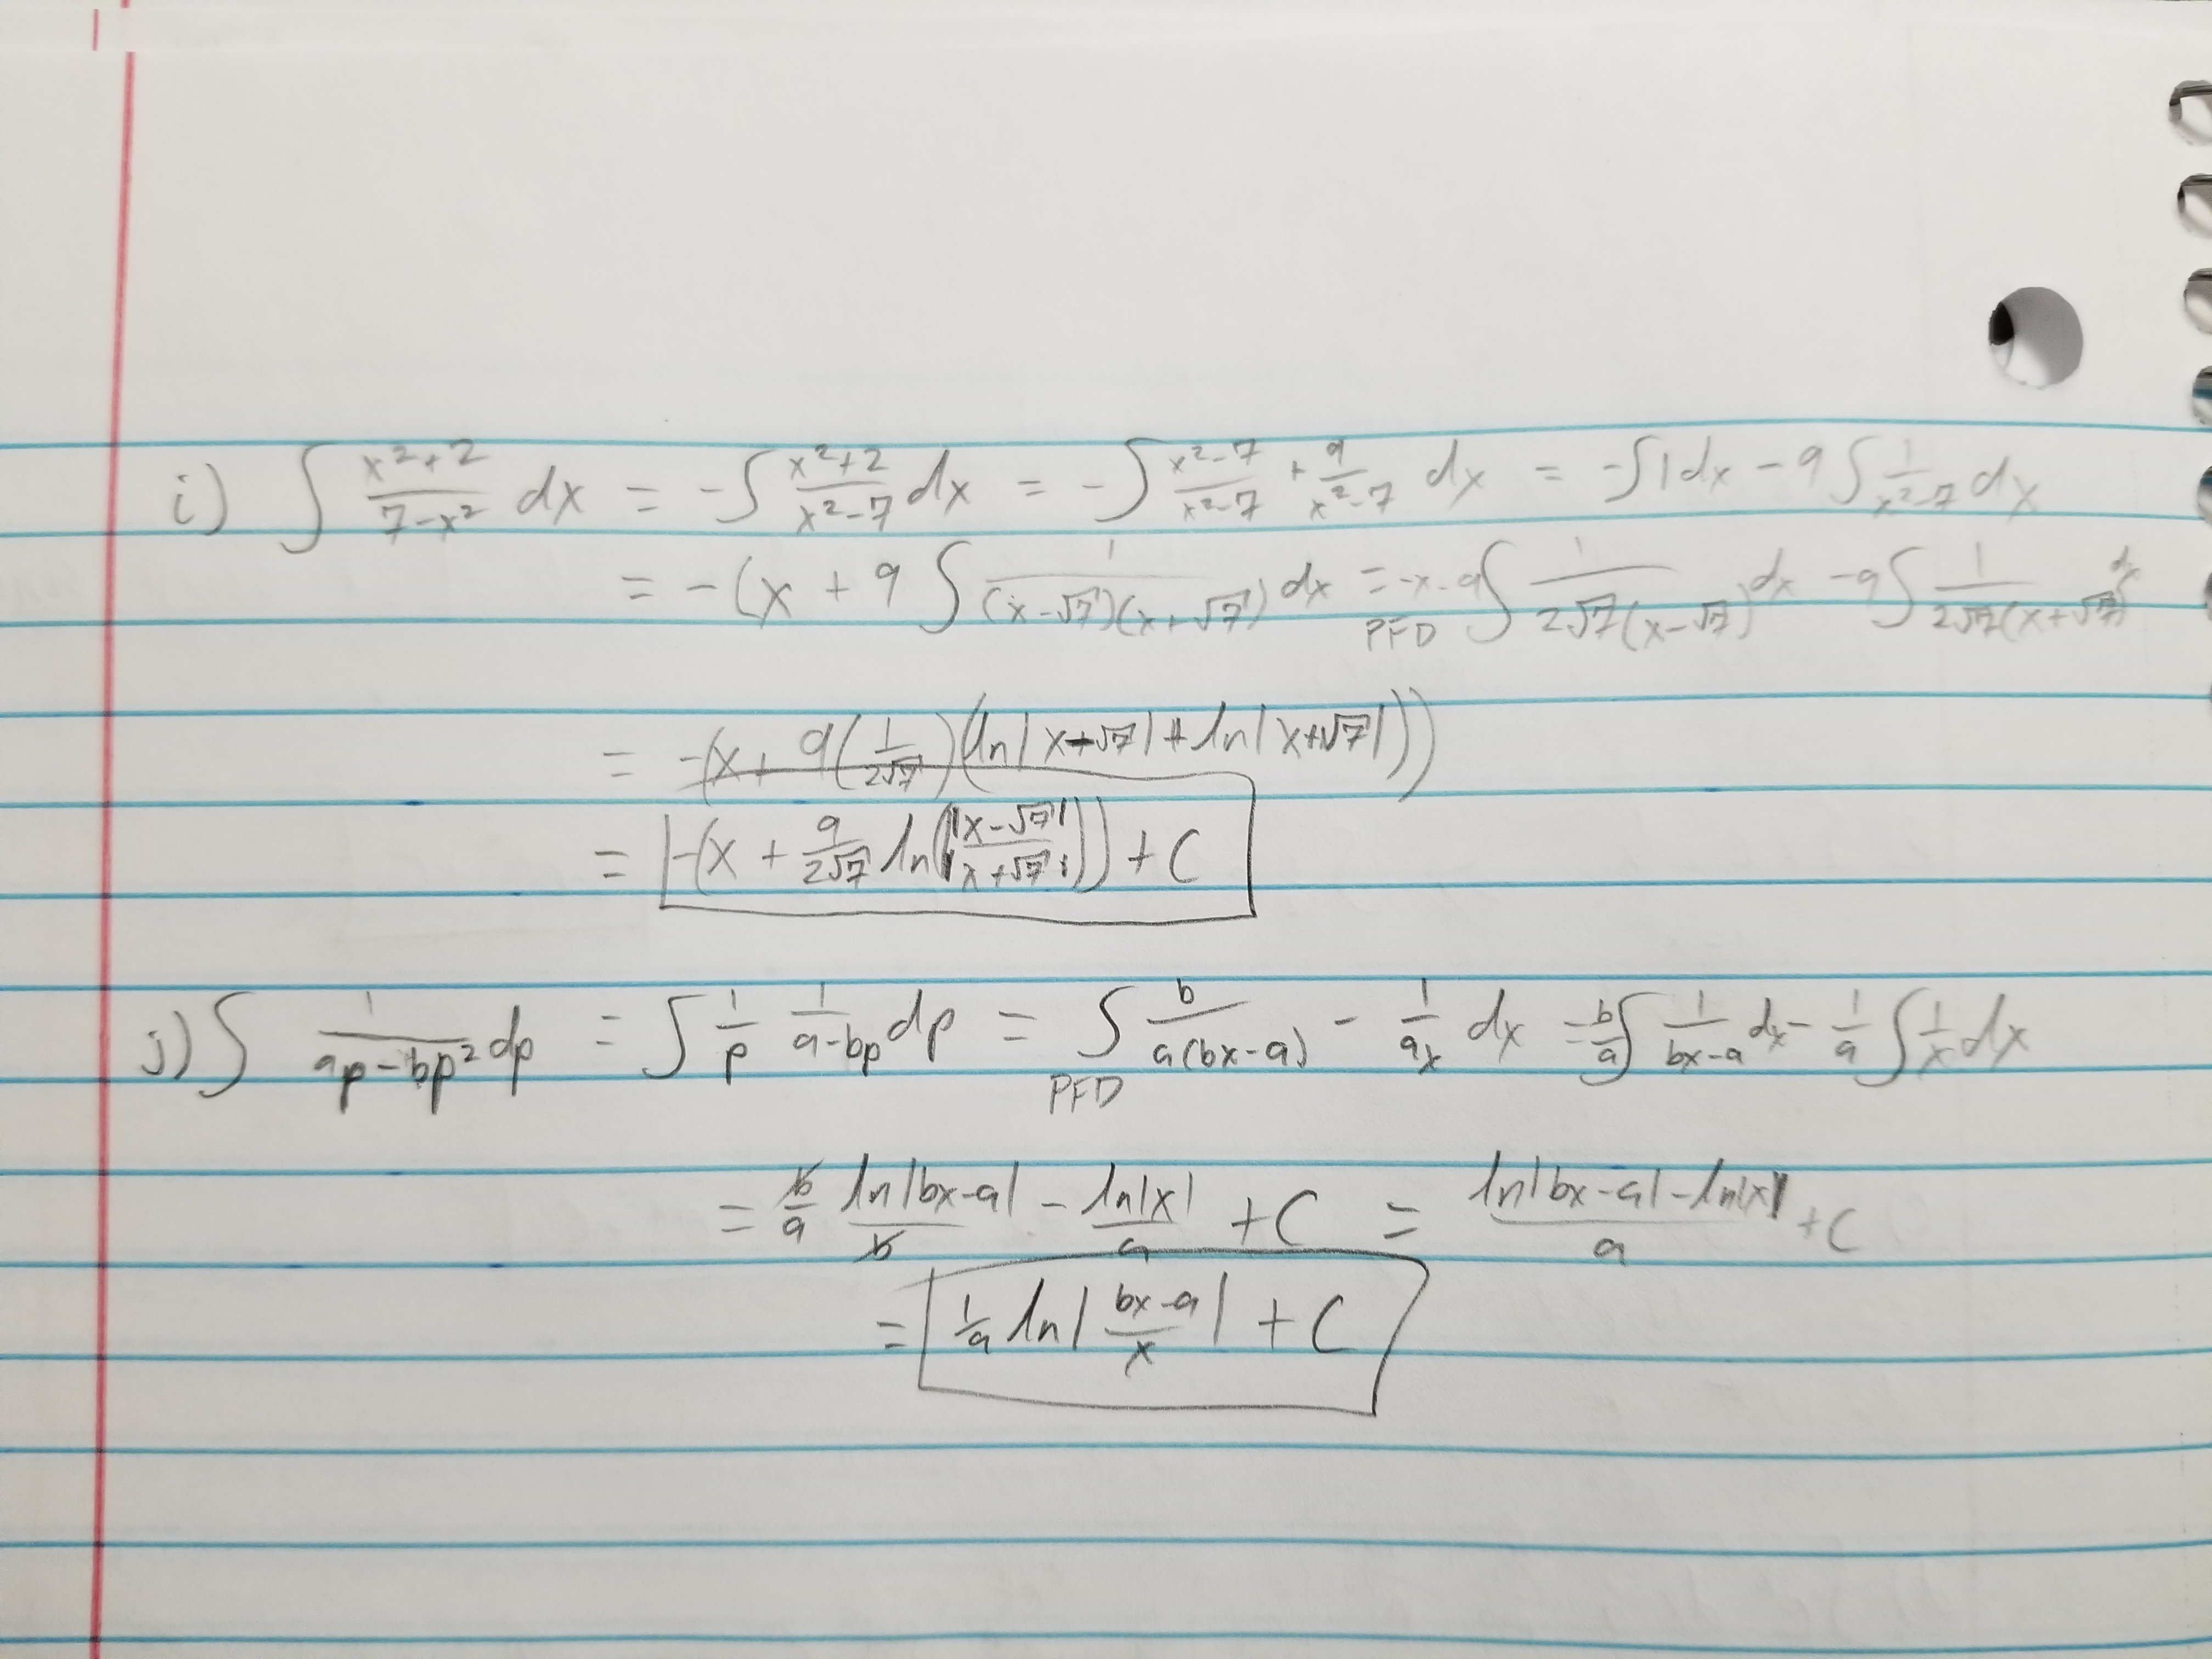 i) ∫ (x²+2)/(7-x²) dx = -∫ (x²+2)/(x²-7) dx = -∫ (x²-7)/(x²-7) + 9/(x²-7) dx = -∫1dx - 9∫ 1/(x²-7) dx
= -(x + 9 ∫ 1/((x-√7)(x+√7)) dx =PFD -x-9∫ 1/(2√7(x-√7)) dx -9∫ 1/(2√7(x+√7)) dx
= -(x+ 9(1/(2√7))(ln|x+√7| + ln|x+√7|))
= -(x + 9/(2√7) ln(|x-√7|/|x+√7|)) + C
j) ∫ 1/(ap-bp²) dp = ∫ 1/p 1/(a-bp) dp =PFD ∫ b/(a(bx-a)) - 1/(ax) dx = b/a ∫ 1/(bx-a) dx - 1/a ∫ 1/x dx
= b/a ln|bx-a|/b - ln|x|/a + C = (ln|bx-a| - ln|x|)/a + C
= 1/a ln|(bx-a)/x| + C